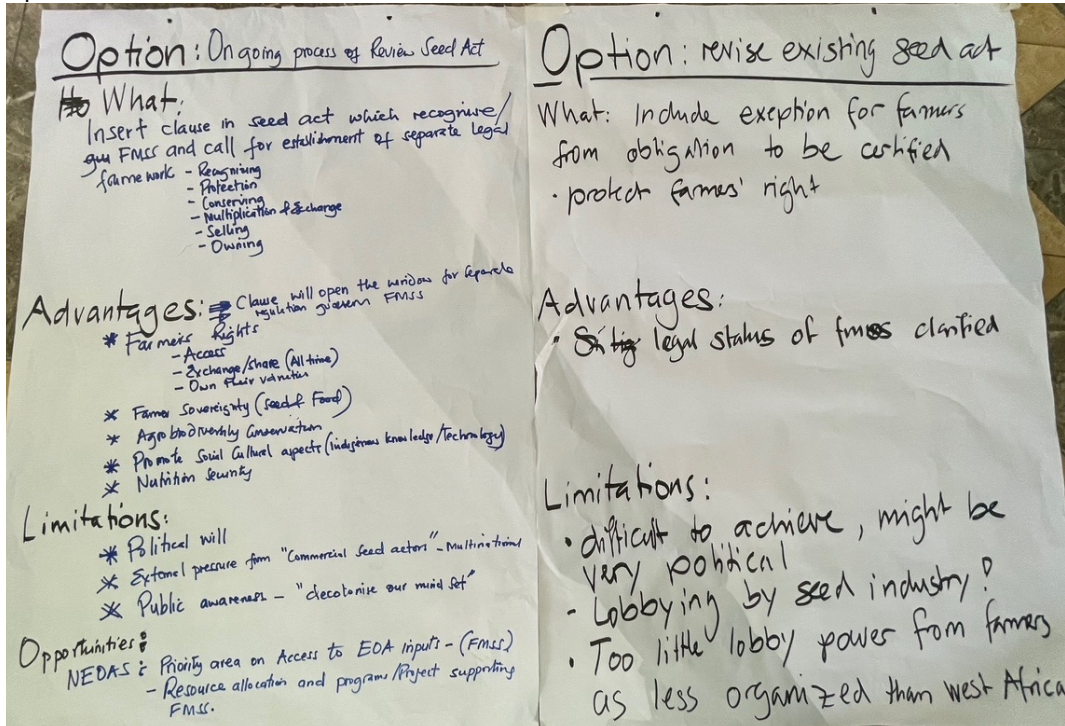 Option: Ongoing process of Review Seed Act
What:
Insert clause in seed act which recognise/
FMSS and call for establishment of separate legal
framework - Recognising
- Protection
- Conserving
- Multiplication & Exchange
- Selling
- Owning
Advantages: Clause will open the window for separate
regulation govern FMSS
* Farmers Rights
- Access
- Exchange/share (All time)
- Own their varieties
* Farmer Sovereignty (Seed & Food)
* Agrobiodiversity Conservation
* Promote Social Cultural aspects (Indigenous knowledge/Technology)
* Nutrition Security
Limitations:
* Political will
* External pressure from "Commercial Seed actors" - Multinational
* Public awareness - "decolonise our mind set"
Opportunities:
NEOAS: Priority area on Access to EOA inputs - (FMSS)
- Resource allocation and programs/Project supporting
FMSS.
Option: revise existing seed act
What: Include exeption for farmers
from obligation to be certified
• protect farmers' right
Advantages:
• legal status of fmss clarified
Limitations:
• difficult to achieve, might be
very political
- Lobbying by seed industry?
• Too little lobby power from farmers
as less organized than west Africa